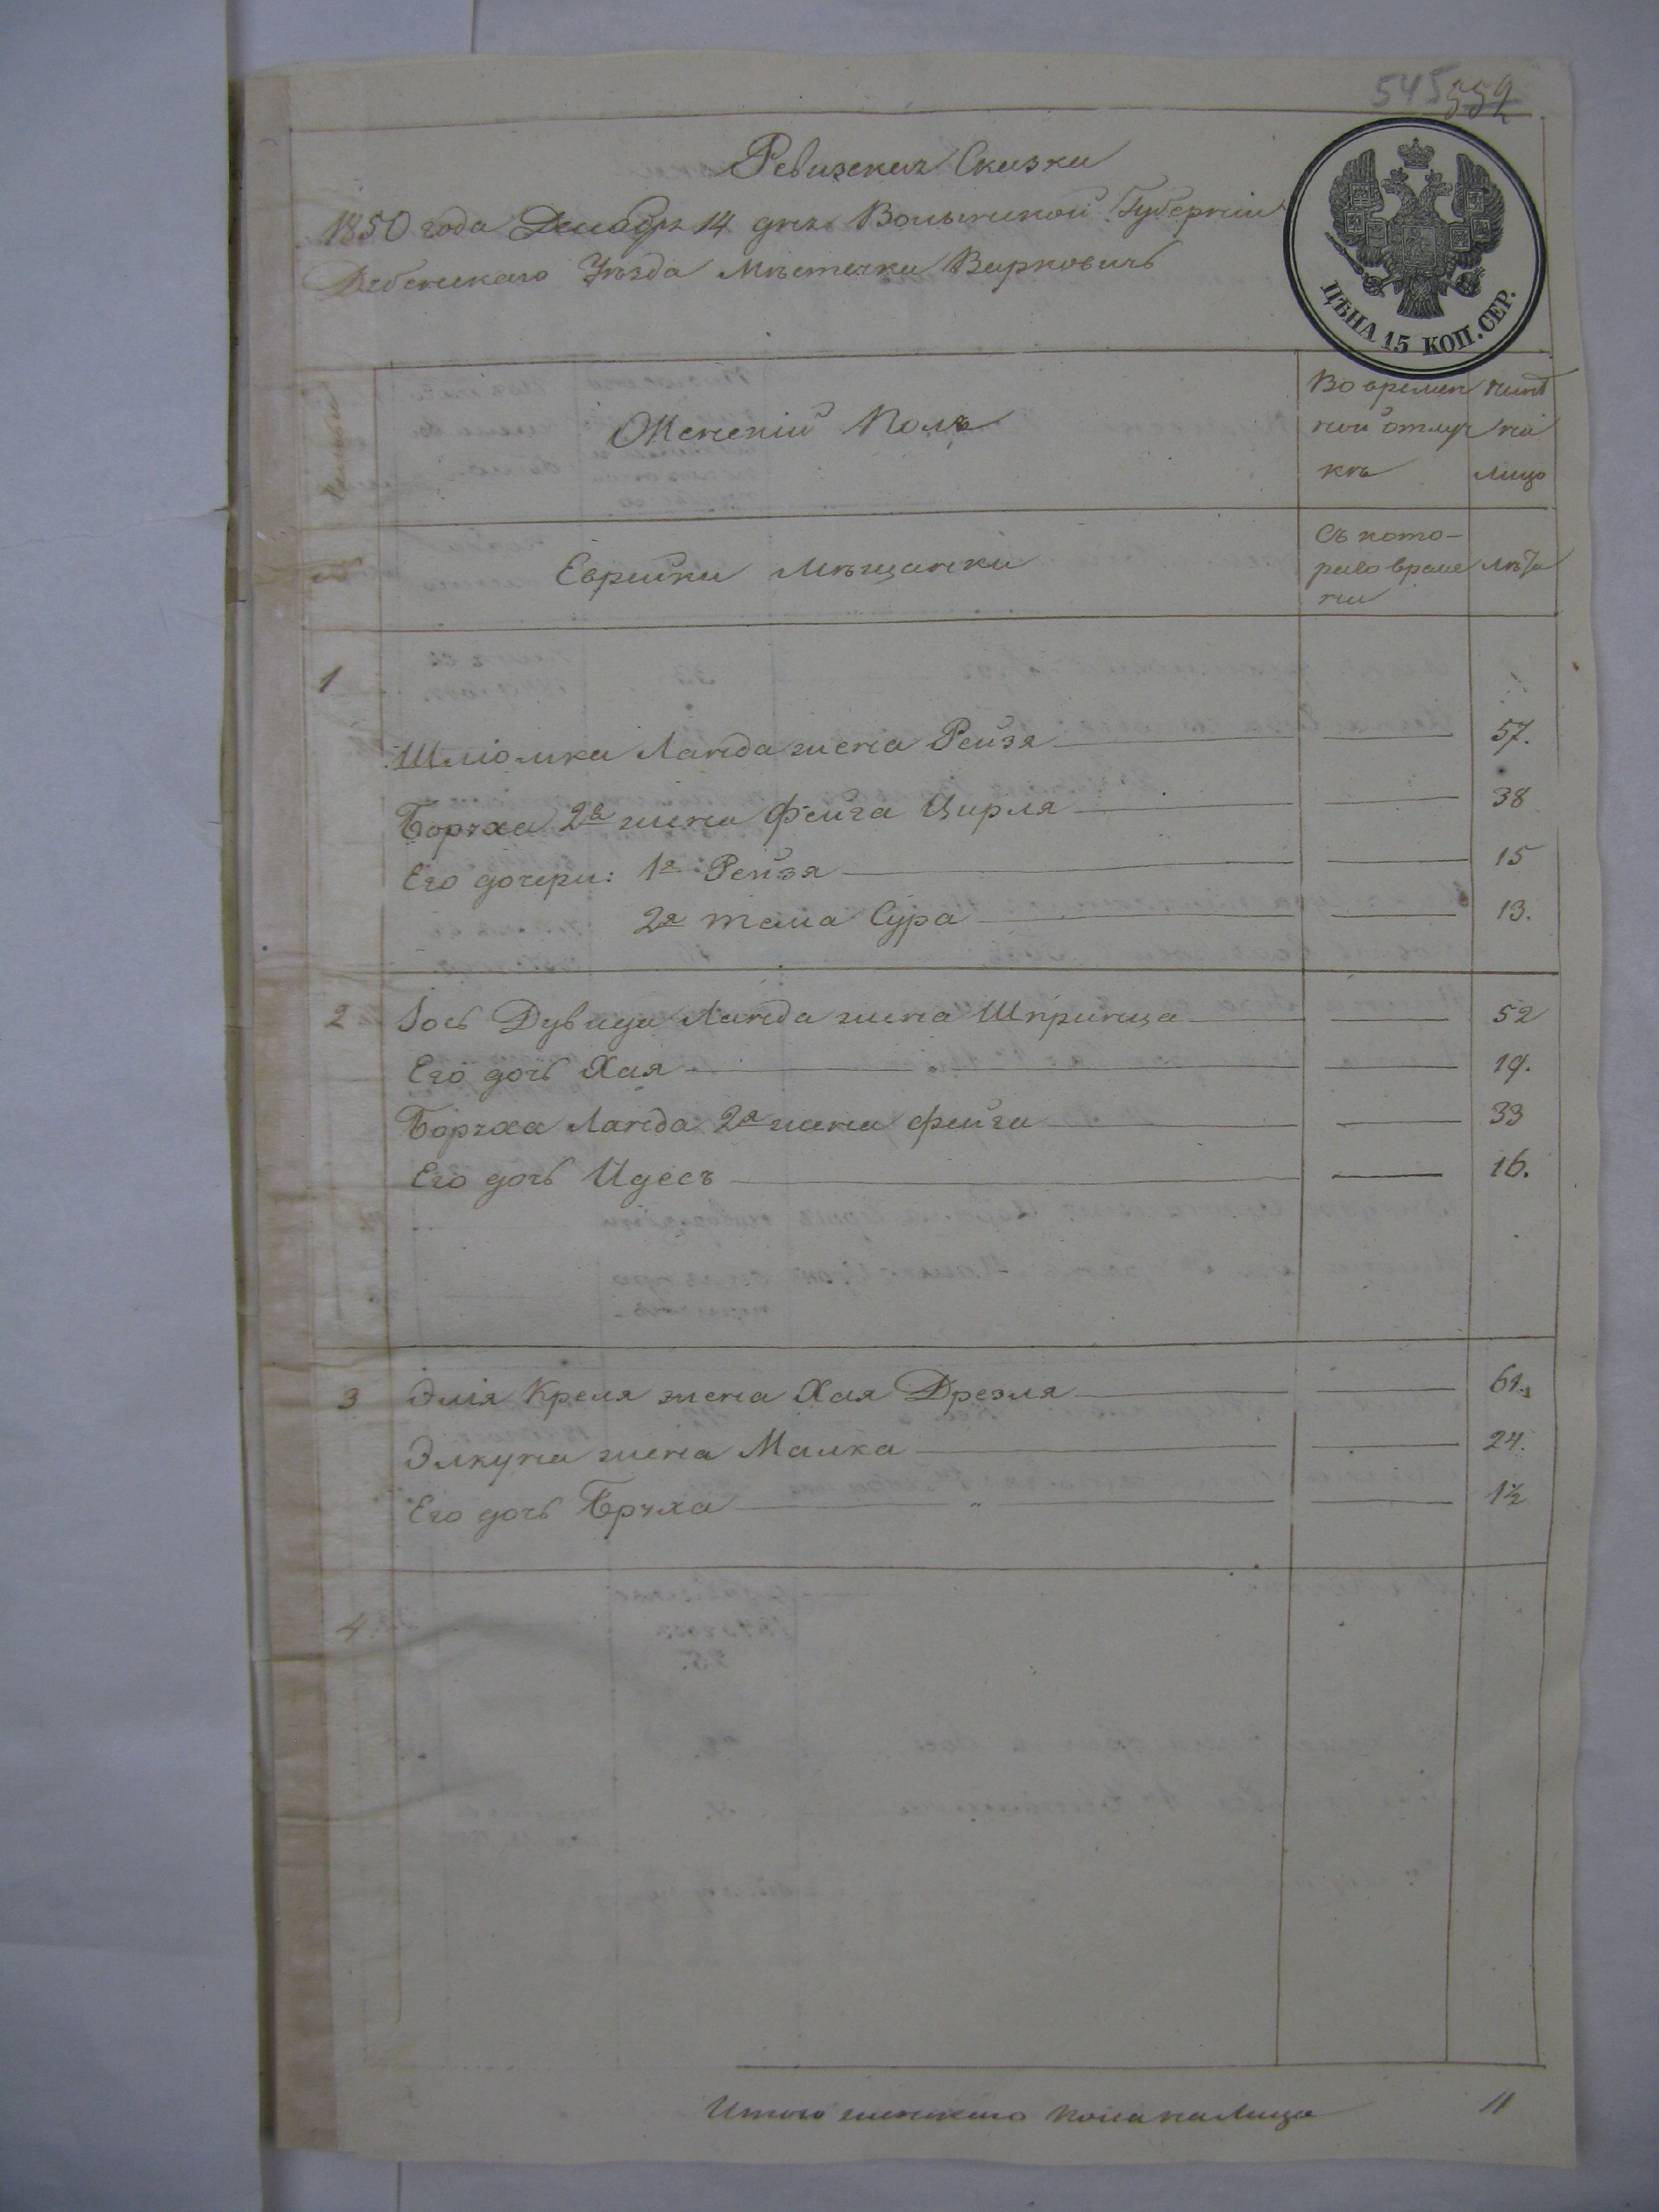 545 552
Ревизская Сказка
1850 года Декабря 14 дня Волынской Губерніи
Дубенскаго Уѣзда Мѣстечка Варковичъ
ЦѢНА 15 КОП. СЕР.
Женскій Полъ
Во времен
ной отлуч
кѣ
на
лицо
Еврейки Мѣщанки
Съ кото-
раго време
ни
лѣта
1
Шліомки Ланда жена Рейзя 57.
Боруха 2я жена Фейга Цирля 38
Его дочери: 1я Рейзя 15
2я тема Сура 13.
2 Іось Дувида Ланда жена Шпринца 52
Его дочь Хая 19.
Боруха Ланда 2я жена Фейга 33
Его дочь Идесъ 16.
3 Элія Креля жена Хая Дрезля 61.
Элкуна жена Малка 24.
Его дочь Бруха 1½
4
Итого женскаго пола на Лицо 11